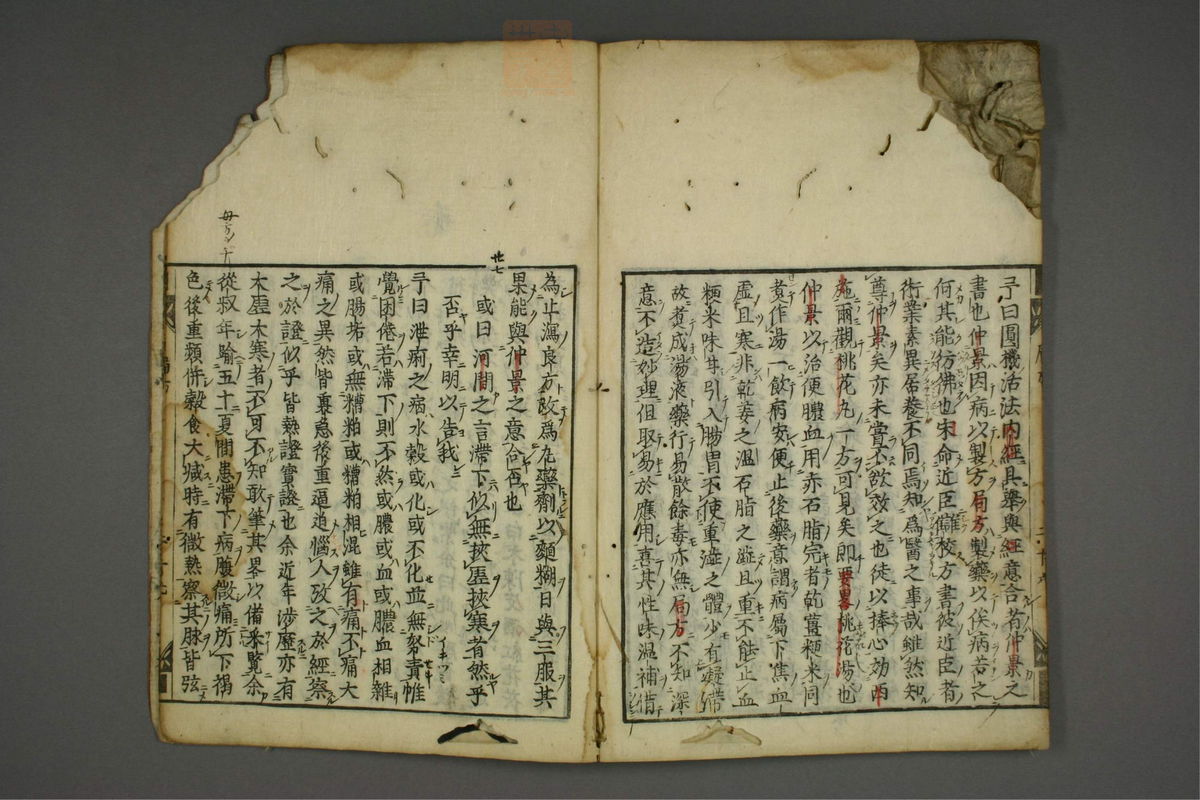 予曰圓機活法内經具舉與經意合若仲景之
書也仲景因病以製方局方製藥以俟病若之
何其能仿佛也宋命近臣讎校方書彼近臣者
術業素異居養不同焉知爲醫之事哉雖然知
尊仲景矣亦未嘗不欲效之也徒以捧心効西
施爾觀桃花丸一方可見矣即要畧桃花湯也
仲景以治便膿血用赤石脂完者乾薑粳米同
煮作湯一飲病安便止後藥意謂病屬下焦血
虚且寒非乾姜之温石脂之澁且重不能止血
粳米味甘引入腸胃不使重澁之體少有凝滯
故煮成湯液藥行易散餘毒亦無局方不知深
意不造妙理但取易於應用喜其性味温補借
為止瀉良方改爲丸藥劑以麵糊日與三服其
果能與仲景之意合否也
廿七
或曰河間之言滯下似無挾虚挾寒者然乎
否乎幸明以告我
予曰泄痢之病水穀或化或不化並無努責惟
覺困倦若滯下則不然或膿或血或膿血相雜
或腸垢或無糟粕或糟粕相混雖有痛不痛大
痛之異然皆裏急後重逼迫惱人攷之於經察
之於證似乎皆熱證實證也余近年渉歴亦有
大虚大寒者不可不知敢筆其畧以備采覧余
從叔年喻五十夏間患滯下病腹微痛所下褐
色後重頻併穀食大減時有微熱察其脉皆弦